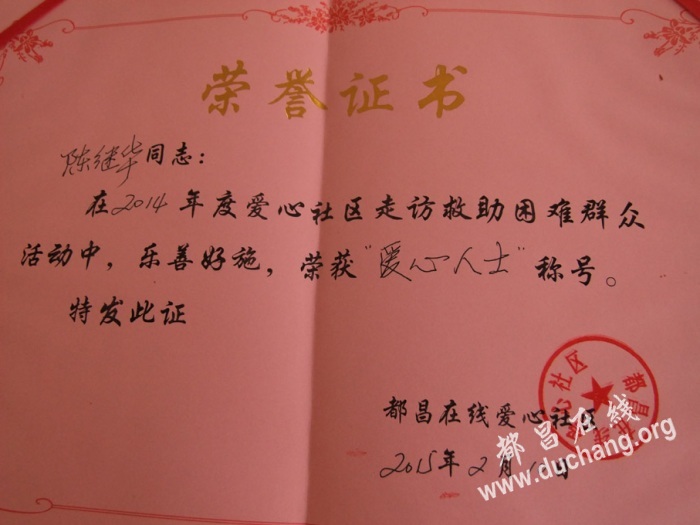 荣誉证书
陈继华同志：
在2014年度爱心社区走访救助困难群众
活动中，乐善好施，荣获“爱心人士”称号。
特发此证
都昌在线爱心社区
2015年2月 日
都昌在线
www.duchang.org